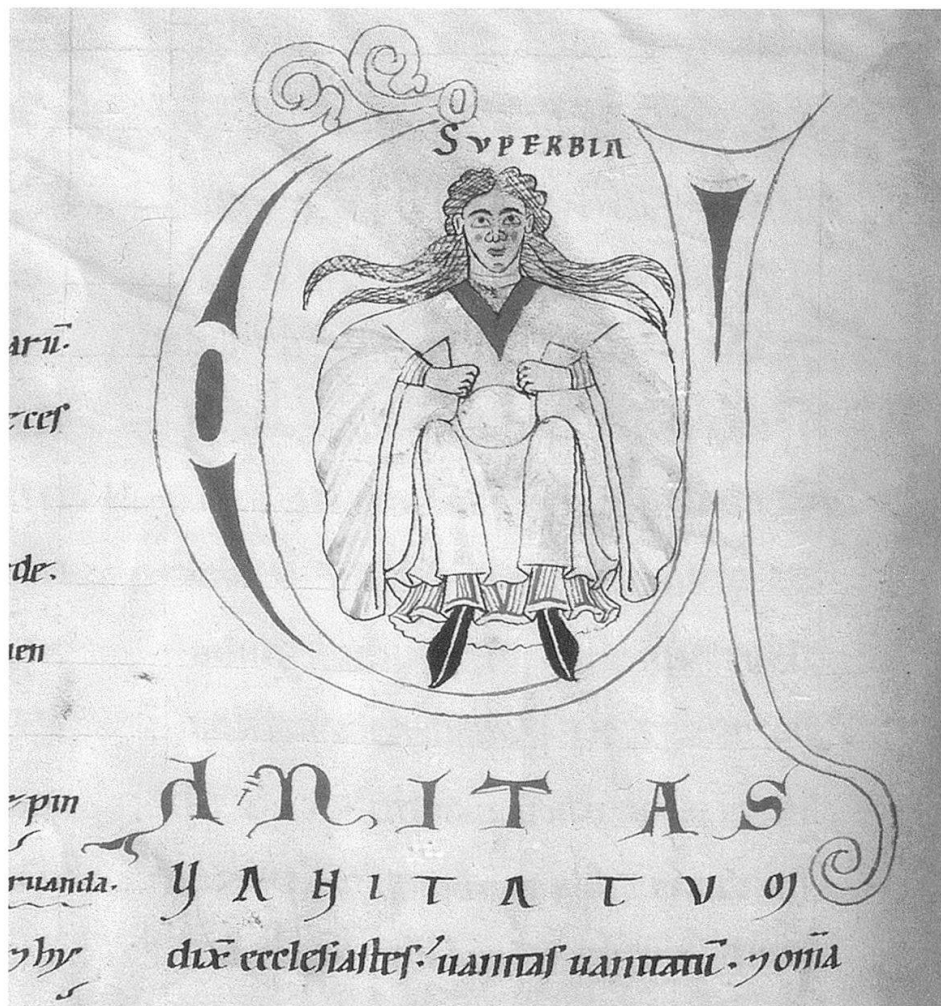 SVPERBIA
arū.
ces
de.
uen
pin
ruanda.
hy
V
ANITAS
VANITATVM
dix̄ ecclesiastes. uanitas uanitatū. ⁊ om̄ia